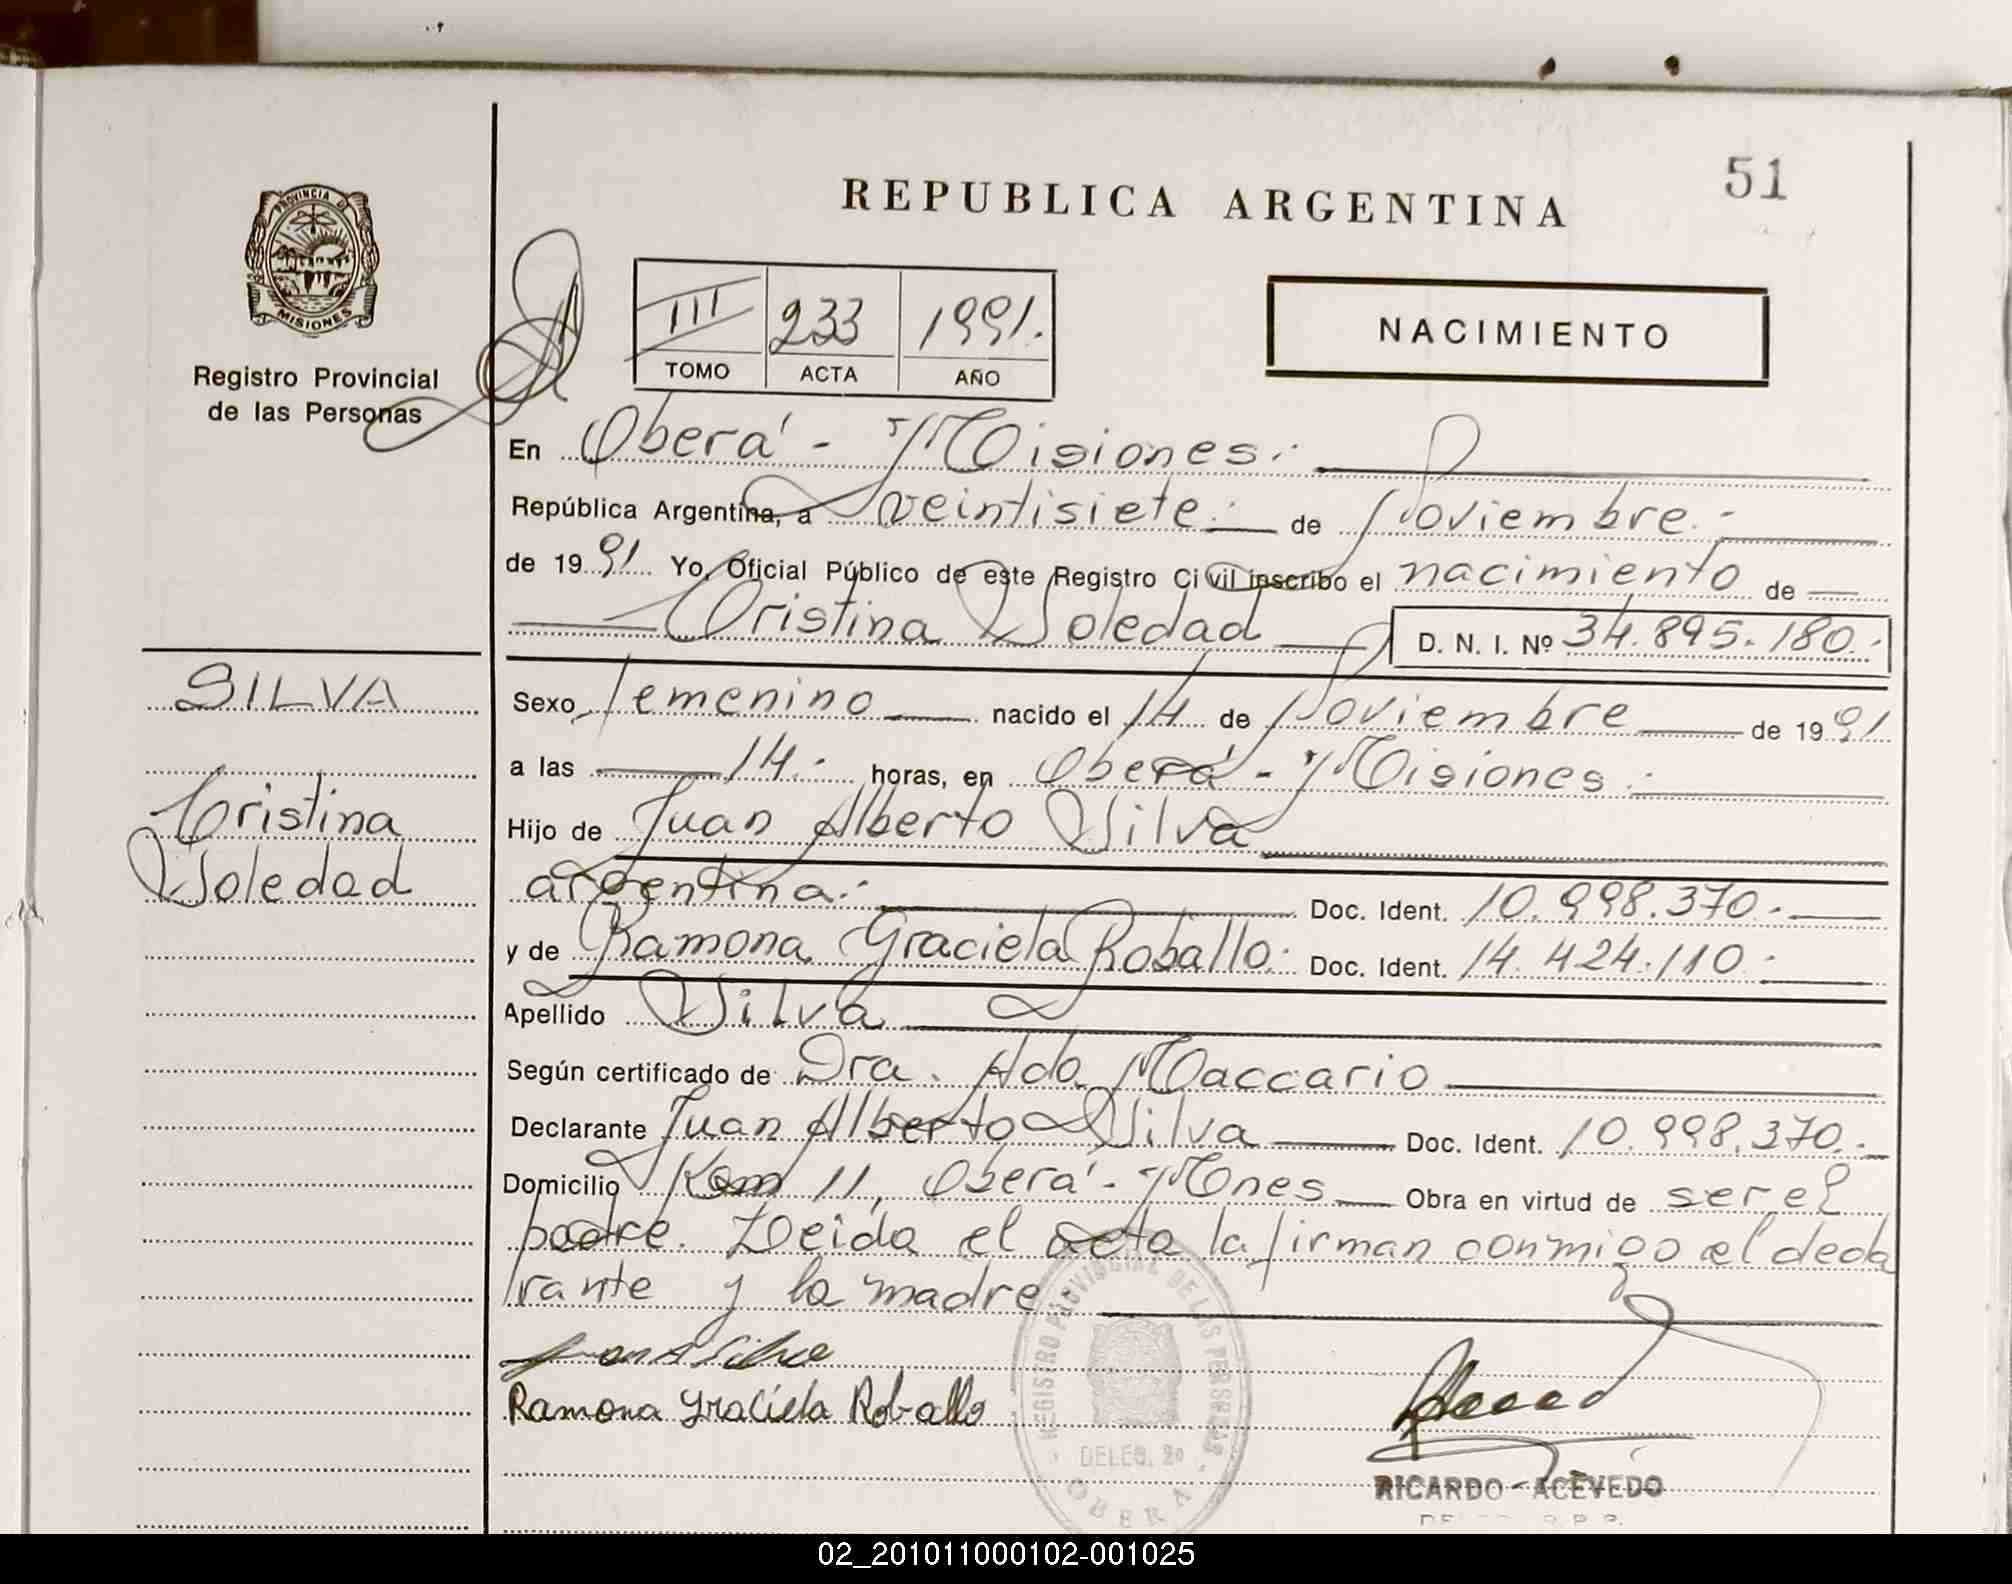 51
REPUBLICA ARGENTINA
PROVINCIA DE
MISIONES
Registro Provincial
de las Personas
III 233 1991.
TOMO ACTA AÑO
NACIMIENTO
En Oberá - Misiones.
República Argentina, a veintisiete. de Noviembre.
de 1991 Yo, Oficial Público de este Registro Civil inscribo el nacimiento de
Cristina Soledad D. N. I. Nº 34.895.180.
SILVA
Cristina
Soledad
Sexo femenino nacido el 14 de Noviembre de 1991
a las 14. horas, en Oberá - Misiones.
Hijo de Juan Alberto Silva
argentina. Doc. Ident. 10.998.370.
y de Ramona Graciela Roballo. Doc. Ident. 14.424.110.
Apellido Silva
Según certificado de Dra. Ada Maccario
Declarante Juan Alberto Silva Doc. Ident. 10.998.370.
Domicilio Km 11, Oberá - Mnes Obra en virtud de ser el
padre. Leida el acta la firman conmigo el decla
rante y la madre
Juan A Silva
Ramona Graciela Roballo
REGISTRO PROVINCIAL DE LAS PERSONAS
DELEG. 20
OBERA
RICARDO ACEVEDO
02_201011000102-001025